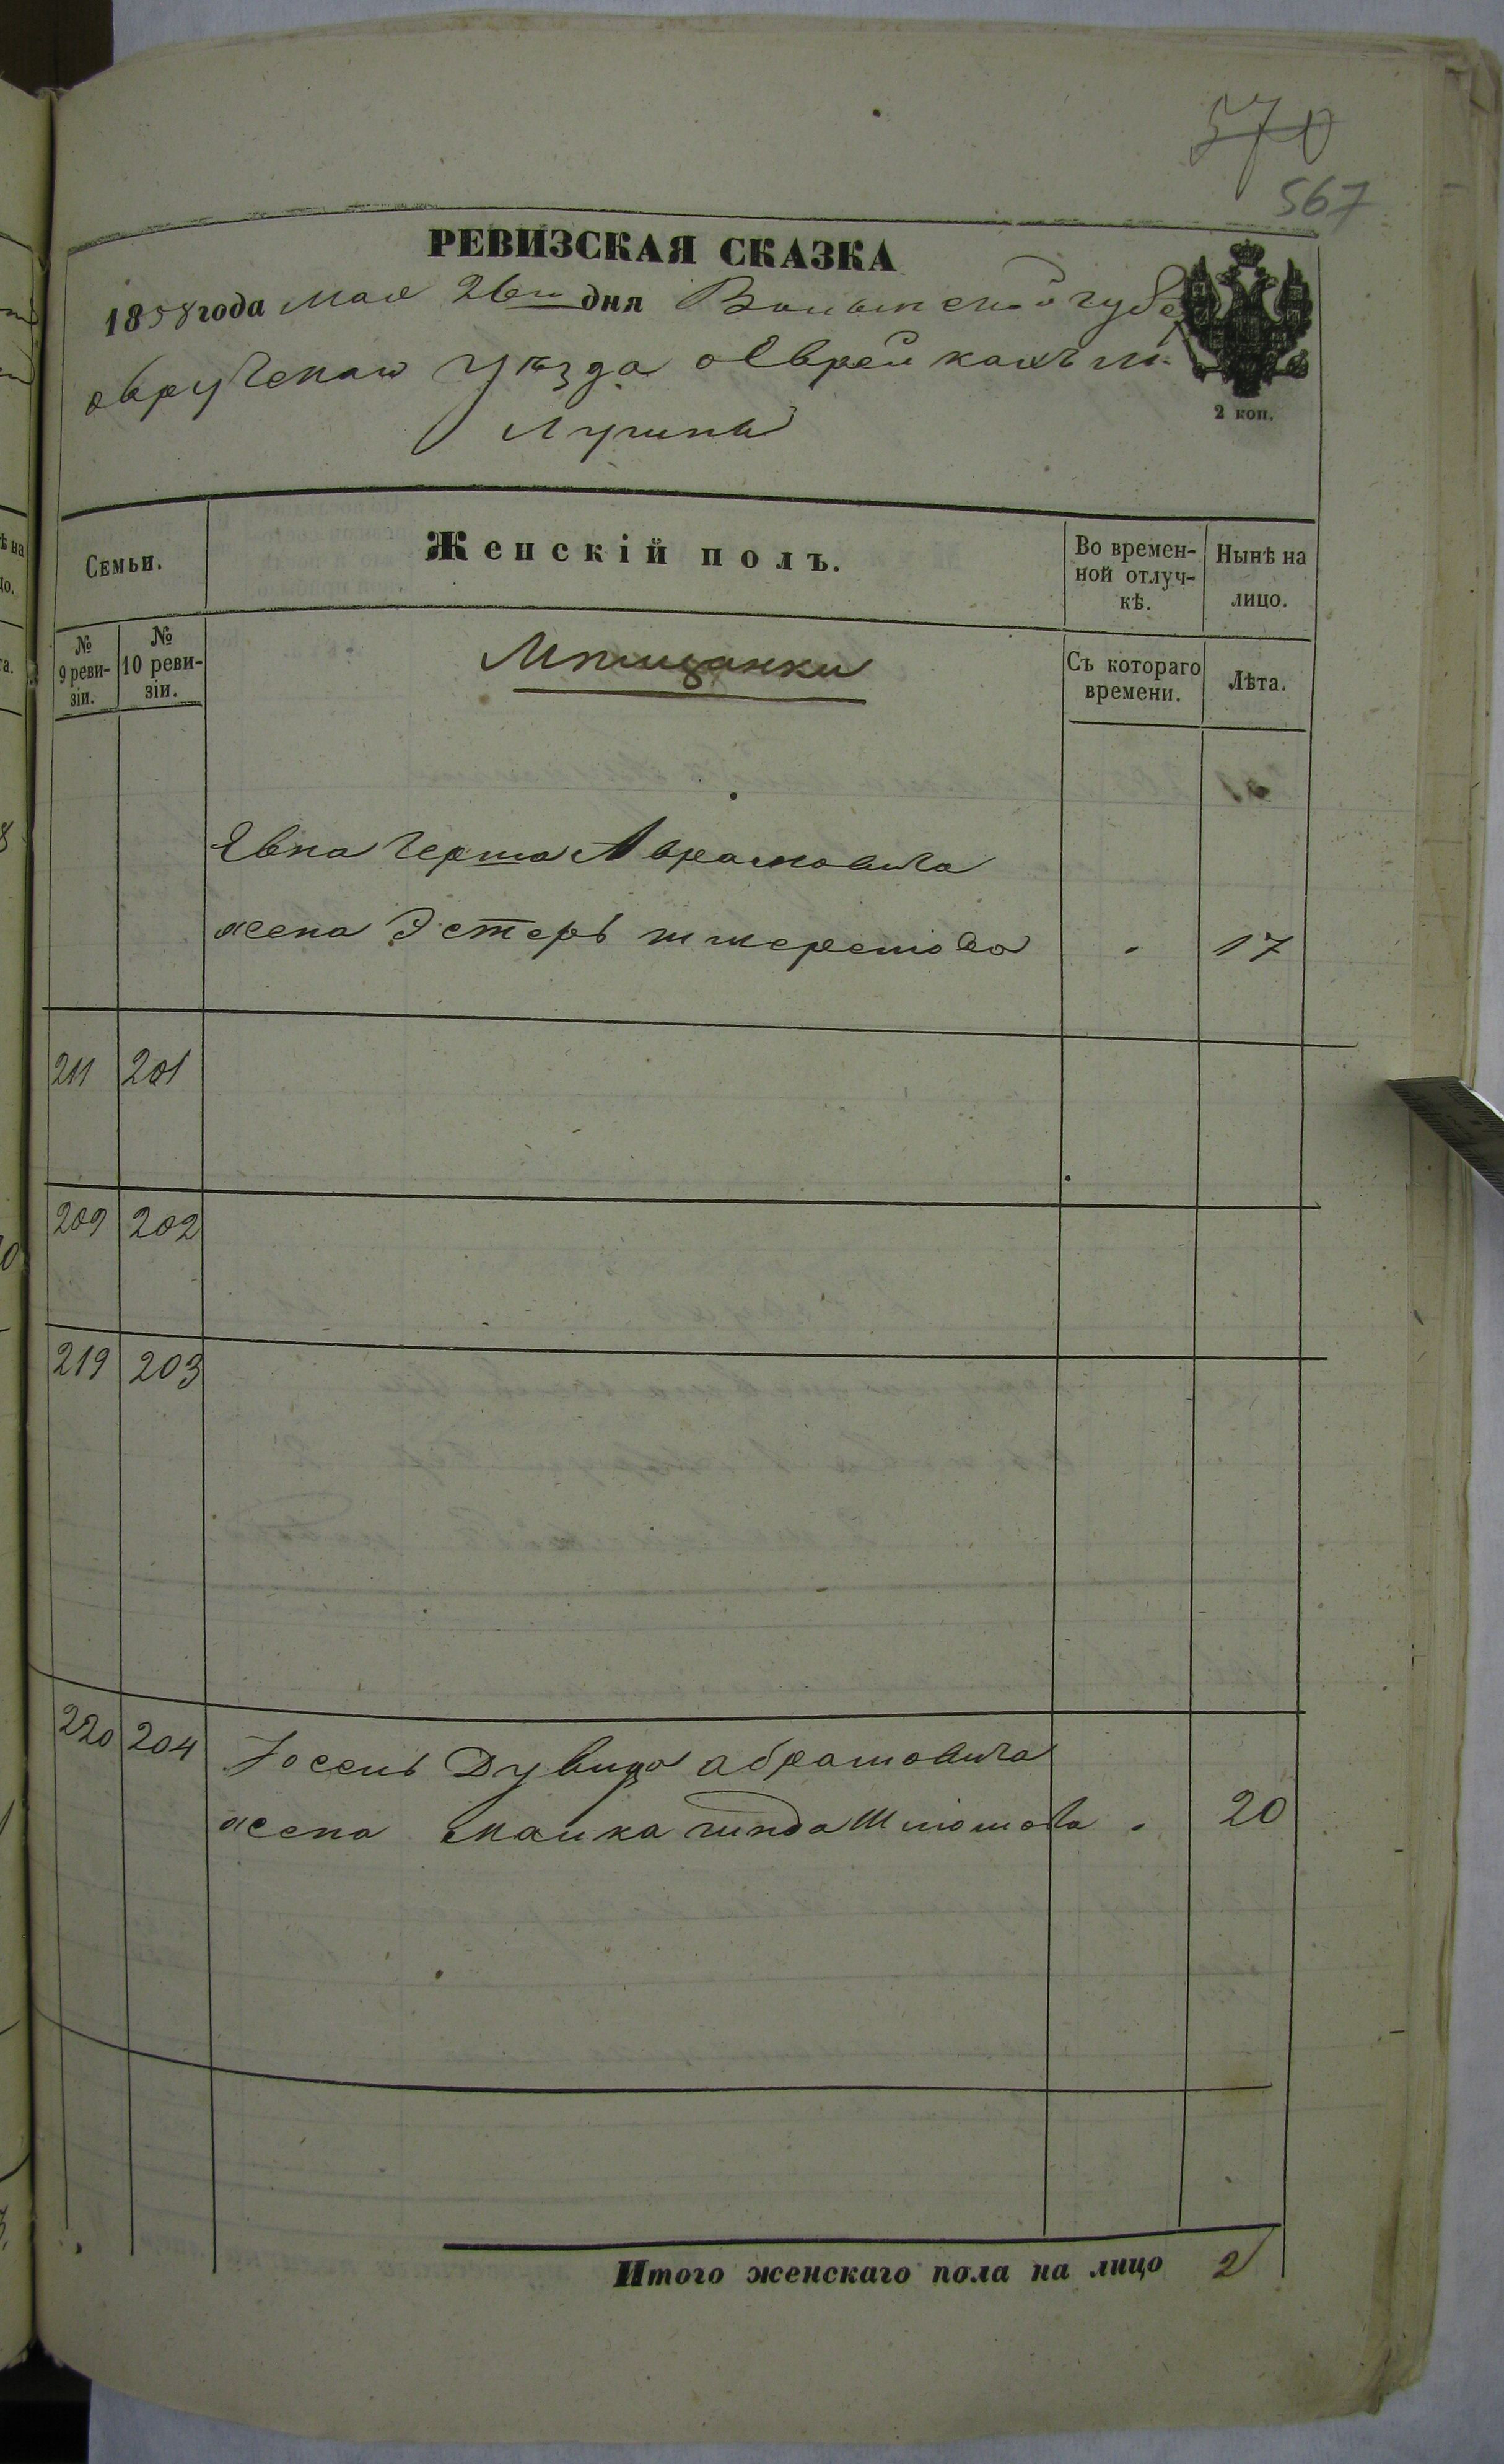 570
567
РЕВИЗСКАЯ СКАЗКА
1858 года Мая 26го дня Волынской губе
овручскаго уѣзда о Еврейкахъ м.
Лугинъ
2 коп.
Семьи.
Женскій полъ.
Во времен-
ной отлуч-
кѣ.
Нынѣ на
лицо.
№
9 реви-
зіи.
№
10 реви-
зіи.
Мѣщанки
Съ котораго
времени.
Лѣта.
Герша Аврамовича
жена Эстеръ 17
211 201
209 202
219 203
220 204 Іосепъ Дувида абрамовича
жена 20
Итого женскаго пола на лицо 2